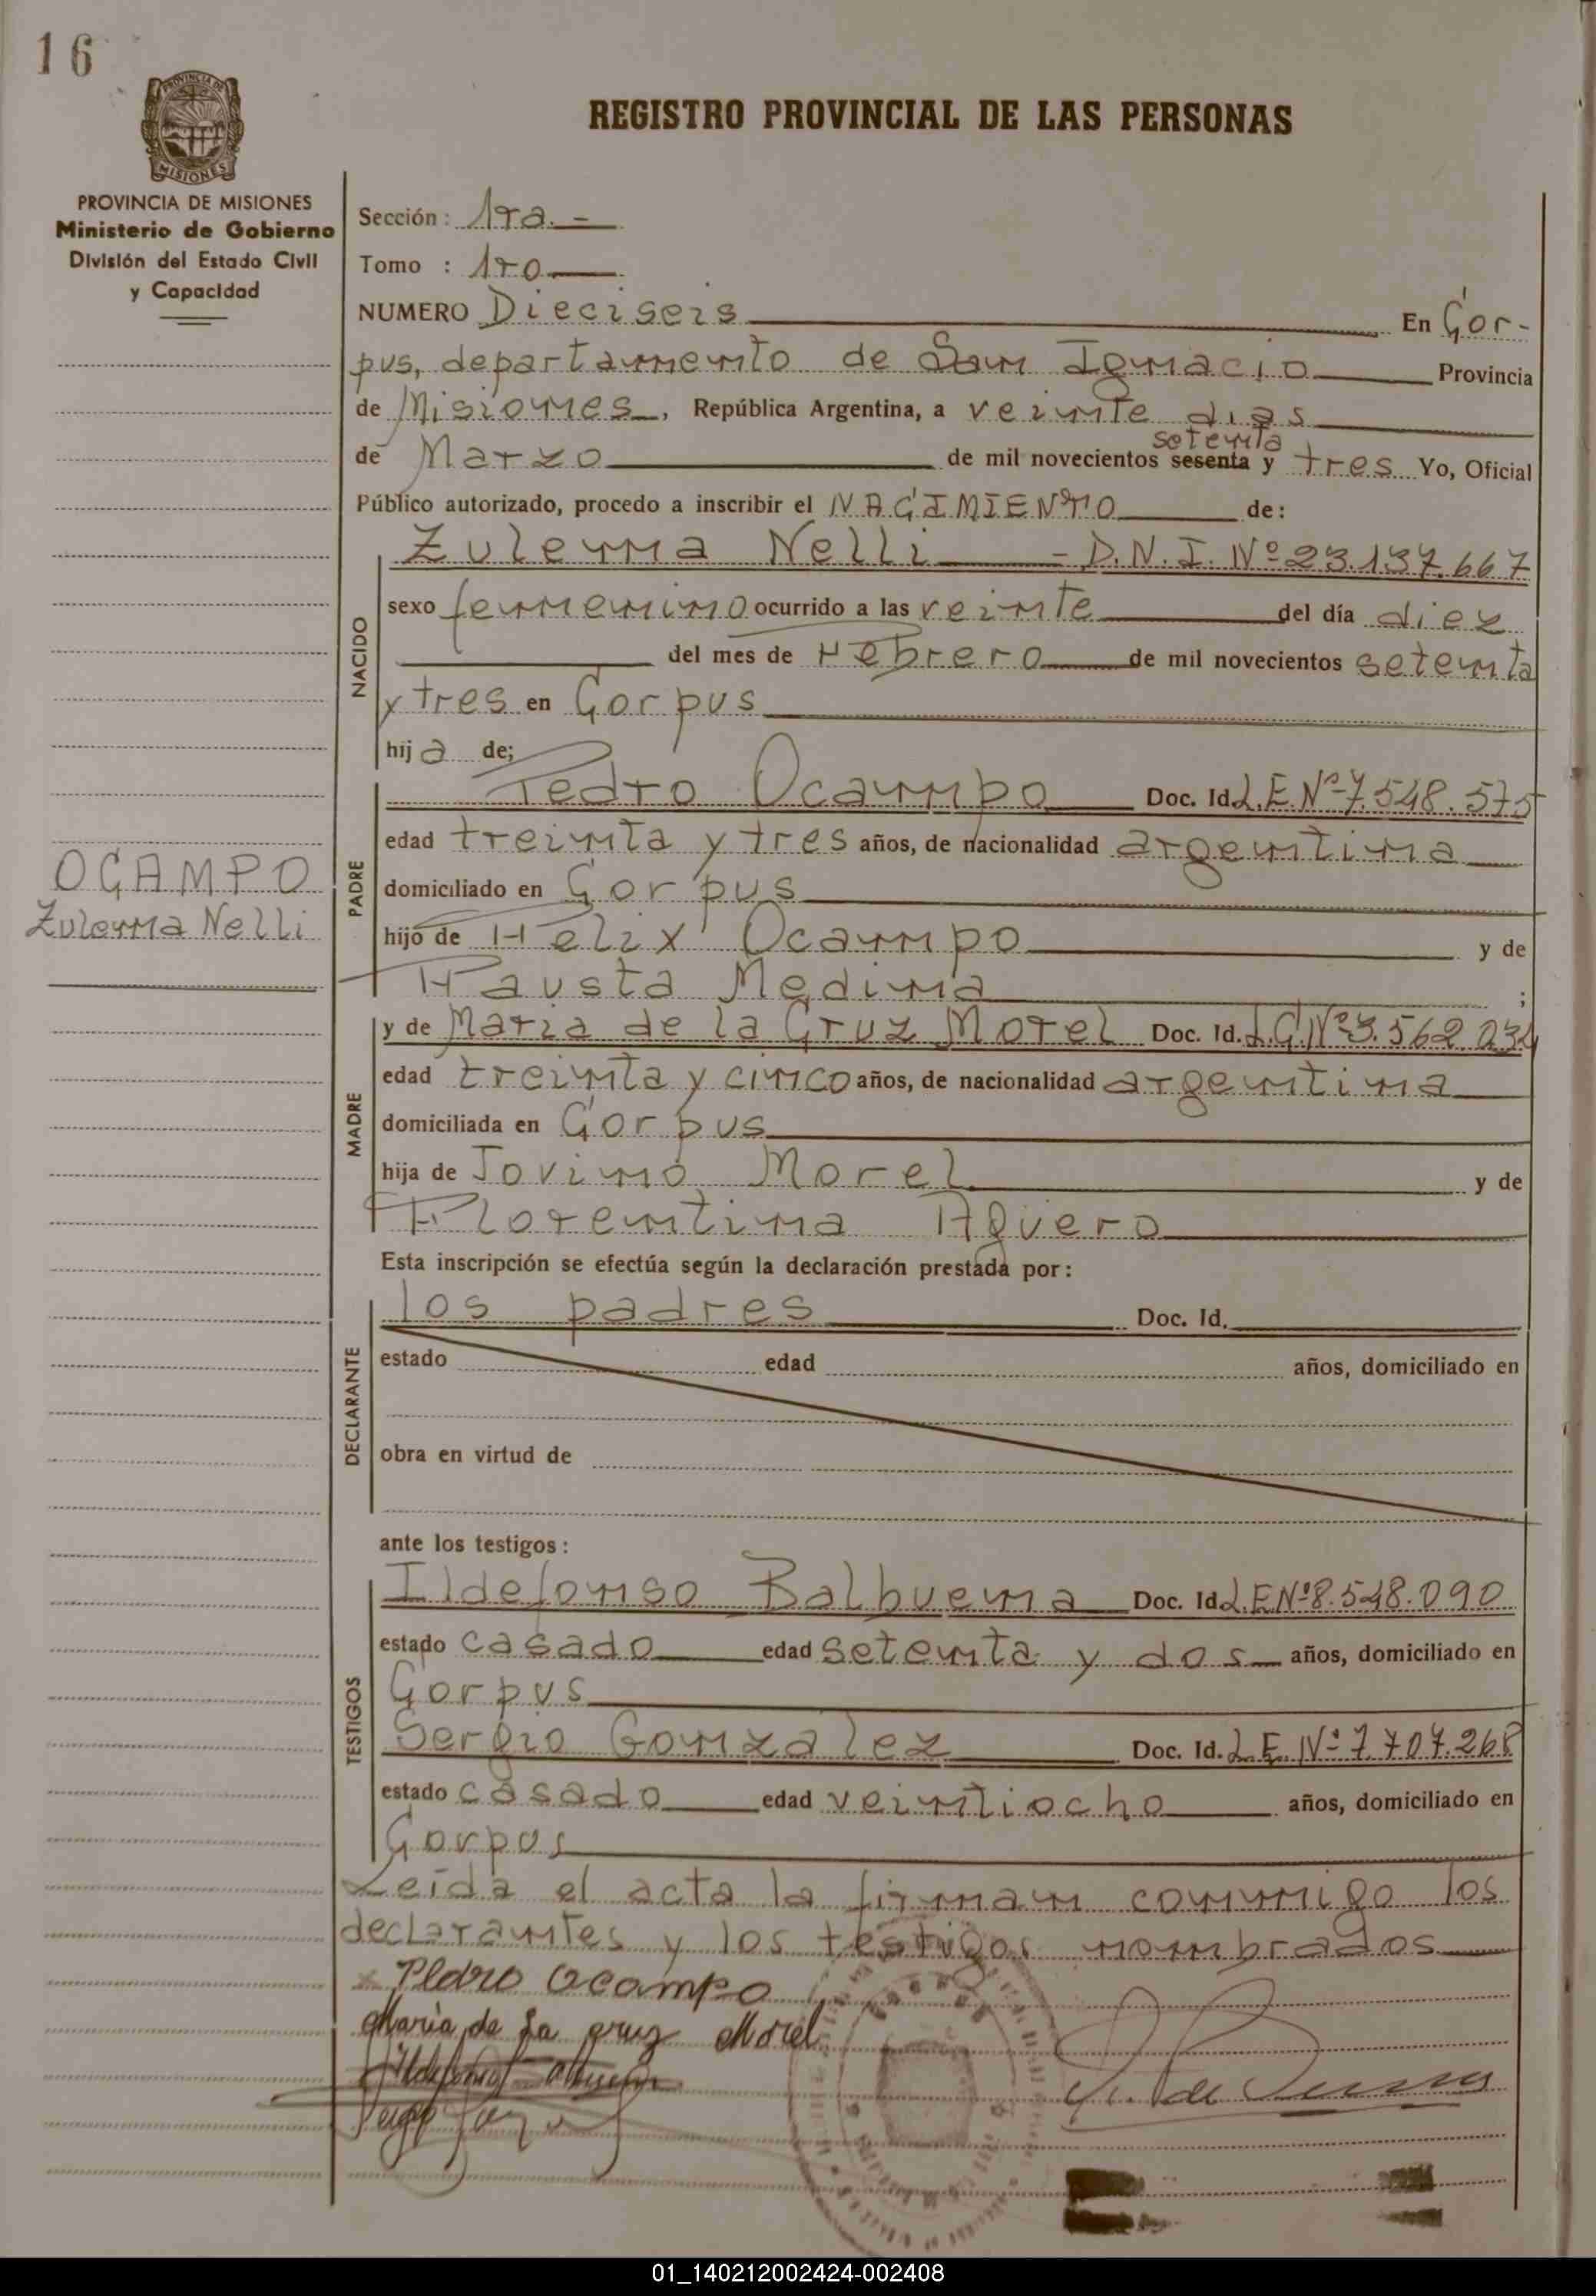 16
PROVINCIA DE
MISIONES
REGISTRO PROVINCIAL DE LAS PERSONAS
PROVINCIA DE MISIONES
Ministerio de Gobierno
División del Estado Civil
y Capacidad
Sección: 1ra.-
Tomo : 1ro
NUMERO Dieciseis En Cor-
pus, departamento de San Ignacio Provincia
de Misiones, República Argentina, a veinte dias
setenta
de Marzo de mil novecientos sesenta y tres Yo, Oficial
Público autorizado, procedo a inscribir el NACIMIENTO de:
Zulema Nelli - D.N.I. Nº 23.137.667
NACIDO
sexo femenino ocurrido a las veinte del día diez
del mes de Febrero de mil novecientos setenta
y tres en Corpus
hija de;
PADRE
Pedro Ocampo Doc. Id. L.E. Nº 7.548.575
edad treinta y tres años, de nacionalidad argentina
domiciliado en Corpus
OCAMPO
Zulema Nelli
hijo de Felix Ocampo y de
Fausta Medina ;
MADRE
y de Maria de la Cruz Morel Doc. Id. L.C. Nº 3.562.034
edad treinta y cinco años, de nacionalidad argentina
domiciliada en Corpus
hija de Jovino Morel y de
Florentina Aguero
Esta inscripción se efectúa según la declaración prestada por:
DECLARANTE
los padres Doc. Id.
estado edad años, domiciliado en
obra en virtud de
ante los testigos:
TESTIGOS
Ildefonso Balbuena Doc. Id. L.E. Nº 8.548.090
estado casado edad setenta y dos años, domiciliado en
Corpus
Sergio Gonzalez Doc. Id. L.E. Nº 7.707.268
estado casado edad veintiocho años, domiciliado en
Corpus
Leida el acta la firman conmigo los
declarantes y los testigos nombrados
Pedro Ocampo
Maria de la cruz Morel
01_140212002424-002408